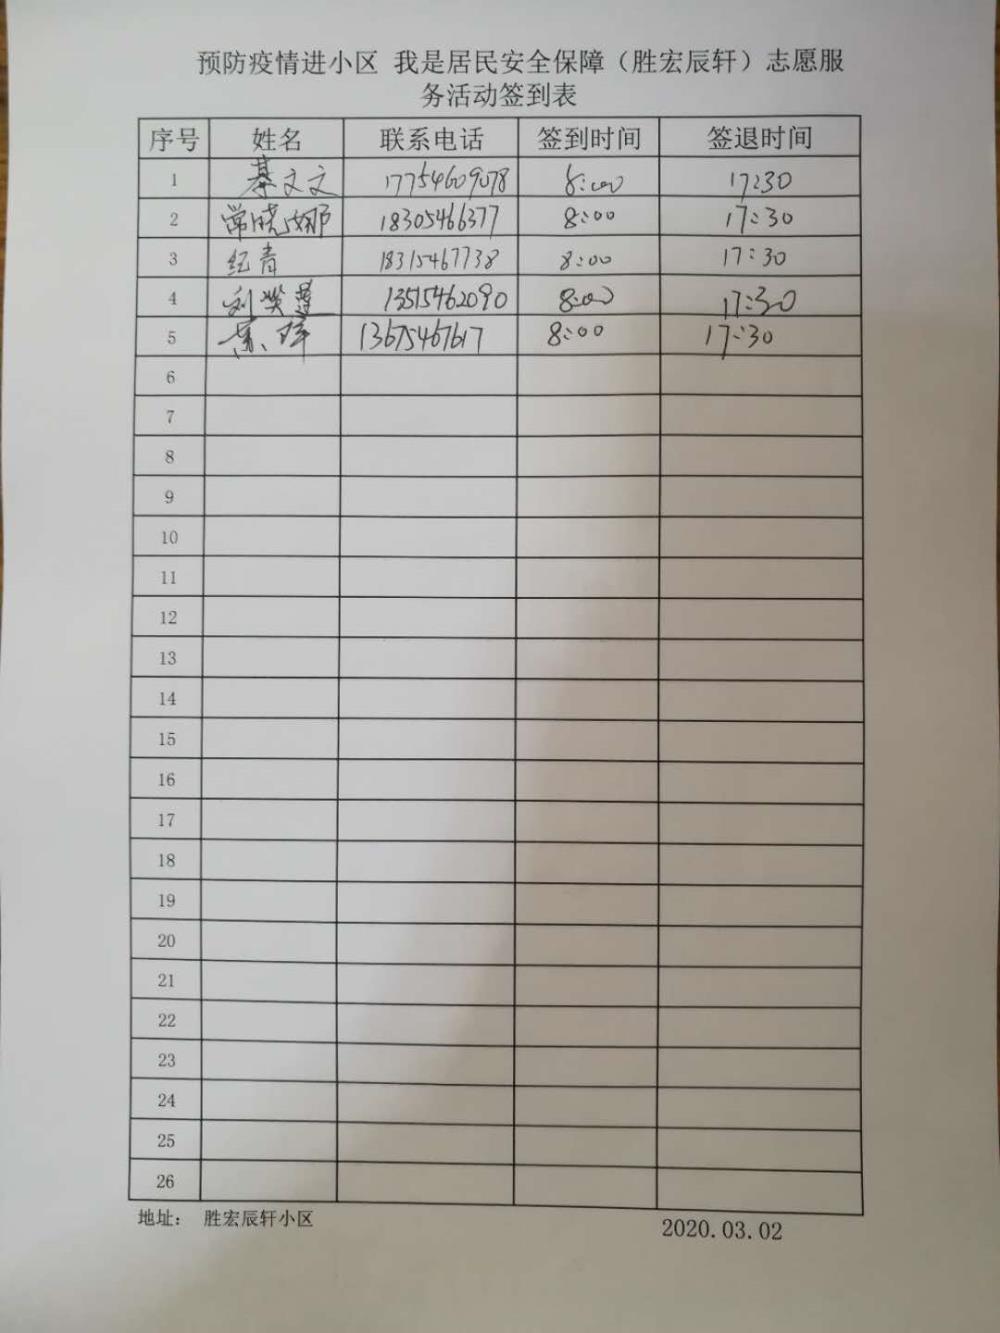 预防疫情进小区 我是居民安全保障（胜宏辰轩）志愿服
务活动签到表
序号 姓名 联系电话 签到时间 签退时间
1 綦文文 17754609078 8:00 17:30
2 常晓娜 18305466377 8:00 17:30
3 纪青 18315467738 8:00 17:30
4 13515462090 8:00 17:30
5 13675467617 8:00 17:30
6
7
8
9
10
11
12
13
14
15
16
17
18
19
20
21
22
23
24
25
26
地址： 胜宏辰轩小区
2020.03.02